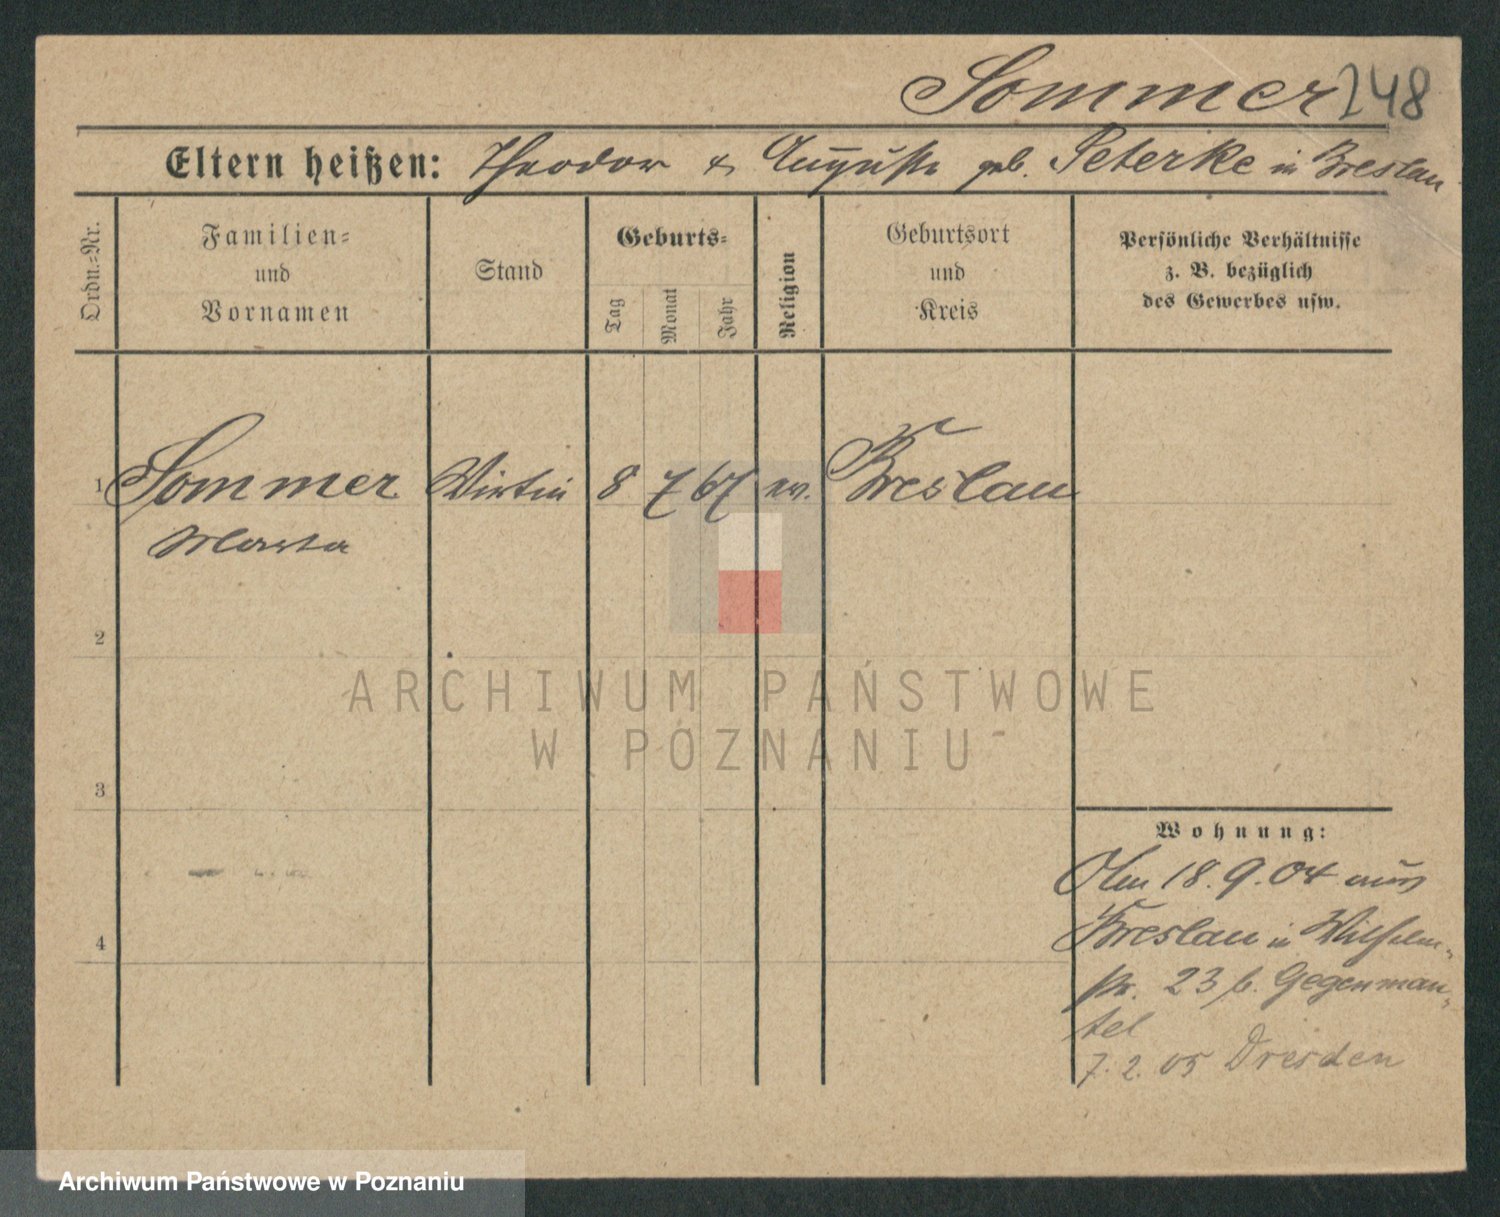 Sommer 248
Eltern heißen: Theodor & Auguste geb. Peterke in Breslau
Ordn.=Nr.
Familien=
und
Vornamen
Stand
Geburts=
Tag
Monat
Jahr
Religion
Geburtsort
und
Kreis
Persönliche Verhältnisse
z. B. bezüglich
des Gewerbes usw.
1 Sommer Wirtin 8 7 67 ev. Breslau
Marta
2
ARCHIWUM PAŃSTWOWE
W POZNANIU
3
Wohnung:
Am 18.9.04 aus
Breslau in Wilhelm-
str. 23 b. Gegenman-
tel
7.2.05 Dresden
4
Archiwum Państwowe w Poznaniu